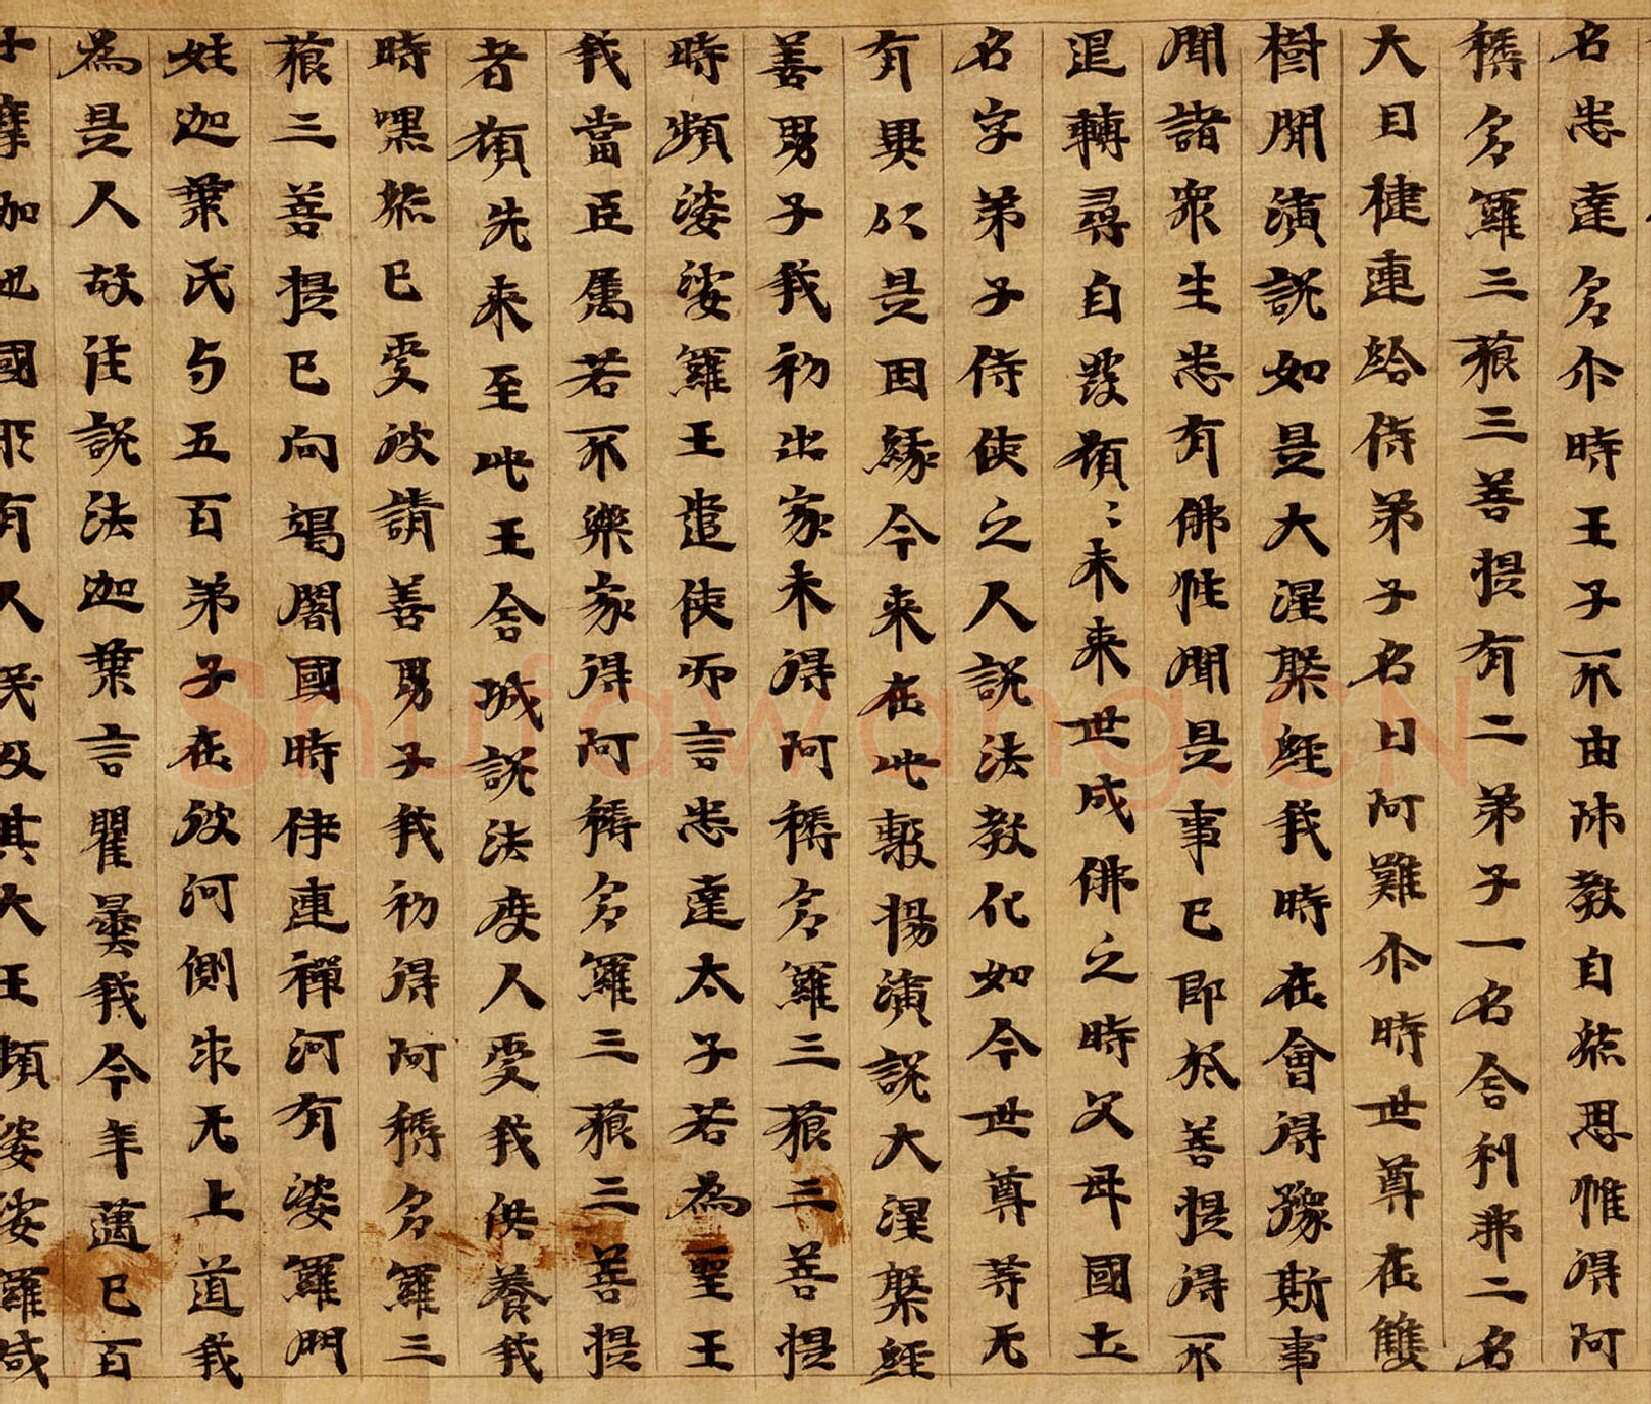 名悉達多尒時王子不由師教自然思惟得阿
耨多羅三藐三菩提有二弟子一名舍利弗二名
大目揵連給侍弟子名曰阿難尒時世尊在雙
樹間演說如是大涅槃經我時在會得豫斯事
聞諸衆生悉有佛性聞是事已即於菩提得不
退轉尋自發願〻未來世成佛之時父母國土
名字弟子侍使之人說法教化如今世尊等无
有異以是因緣今来在此敷揚演說大涅槃經
善男子我初出家未得阿耨多羅三藐三菩提
時頻婆娑羅王遣使而言悉達太子若為聖王
我當臣属若不樂家得阿耨多羅三藐三菩提
者願先来至此王舍城說法度人受我供養我
時嘿然已受彼請善男子我初得阿耨多羅三
藐三菩提已向竭闍國時伊連禪河有婆羅門
姓迦葉氏与五百弟子在彼河側求无上道我
為是人故往說法迦葉言瞿曇我今年邁已百
十摩伽也國所有人民及其大王頻婆娑羅咸
Shufawang.CN